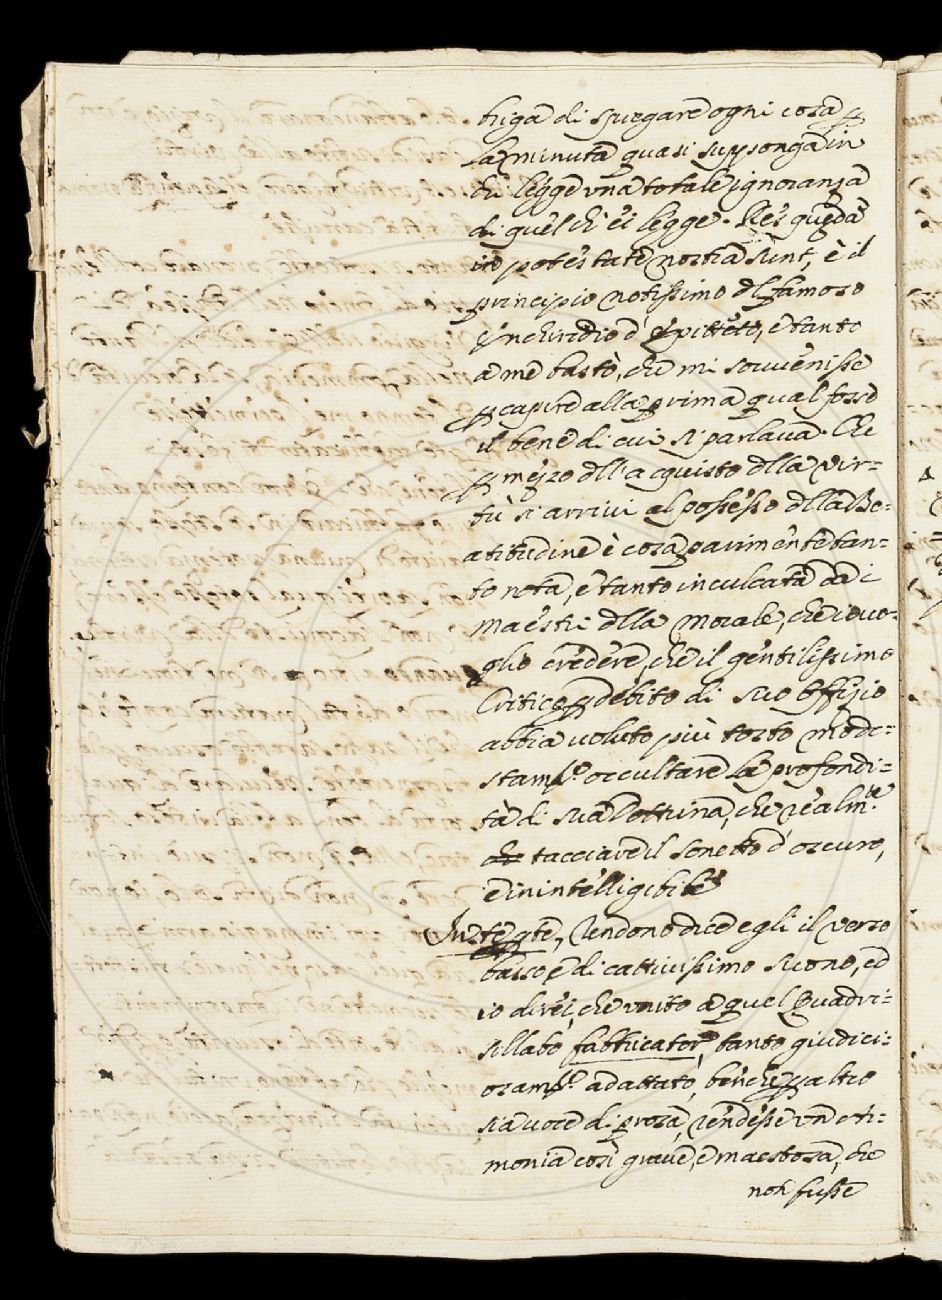 briga di spiegare ogni cosa p
la minuta quasi supponga in
chi legge una totale ignoranza
di quel ch'ei legge. Res quædã
in potestate nostra sunt, è il
principio notissimo dl famoso
Enchiridio d'Epitteto, e tanto
a me bastò, che mi sovvenisse
p capire alla prima qual fosse
il bene di cui si parlava. Che
p mezzo dll'acquisto dlla vir=
tù si arrivi al possesso dlla Be=
atitudine è cosa parimente tan=
to nota, e tanto inculcata da i
Maestri dlla Morale, che io vo=
glio credere, che il gentilissimo
Critico p debito di suo Offizio
abbia voluto più tosto mode=
stamte occultare la profondi=
tà di sua Dottrina, che realmte
che tacciare il Sonetto d'oscuro,
e inintelligibile
gte, rendono dice egli il verso
basso e di cattivissimo suono, ed
io direi, che unito a quel Quadri=
sillabo fabbricator, tanto giudici=
osamte adattato, benchè p altro
sia voce di prosa, rendesse un'eti=
monia così grave, e maestosa, che
non fusse